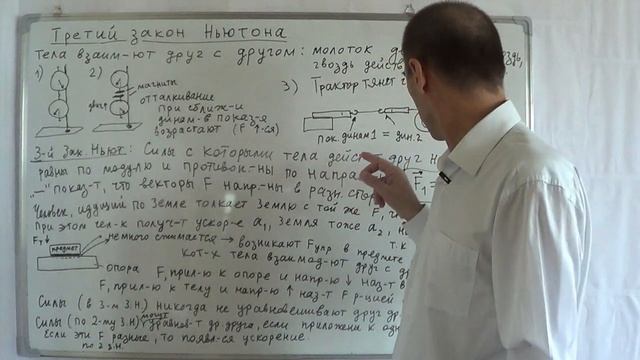 Третий закон Ньютона
Тела взаим-ют друг с другом: молоток
гвоздь действ
1)
2)
магниты
отталкивание
при сближ-и
динам-в показ-я
возрастают (F↑ся)
3) Трактор тянет
пок. динам 1 = дин. 2
3-й Зак. Ньют: Силы с которыми тела дейст друг
равны по модулю и противоп-ны по напра
"—" показ-т, что векторы F напр-ны в разн. стор
Человек, идущий по Земле толкает Землю с той же F,
При этом чел-к получ-т ускор-е a₁, Земля тоже a₂,
F₁
т.к
F₁
предмет
немного сжимается → возникают Fупр в предмете
кот-х тела взаимод-ют друг с
опора
F₁ прил-ю к опоре и напр-ю ↓ наз-т
F₁ прил-ю к телу и напр-ю ↑ наз-т F р-цией
Силы (в 3-м З.Н.) никогда не уравновешивают друг др
Силы (по 2-му З.Н.) могут уравнов-т др. друга, если приложены к од
Если эти F разные, то появл-ся ускорение.
по 2 З.Н.